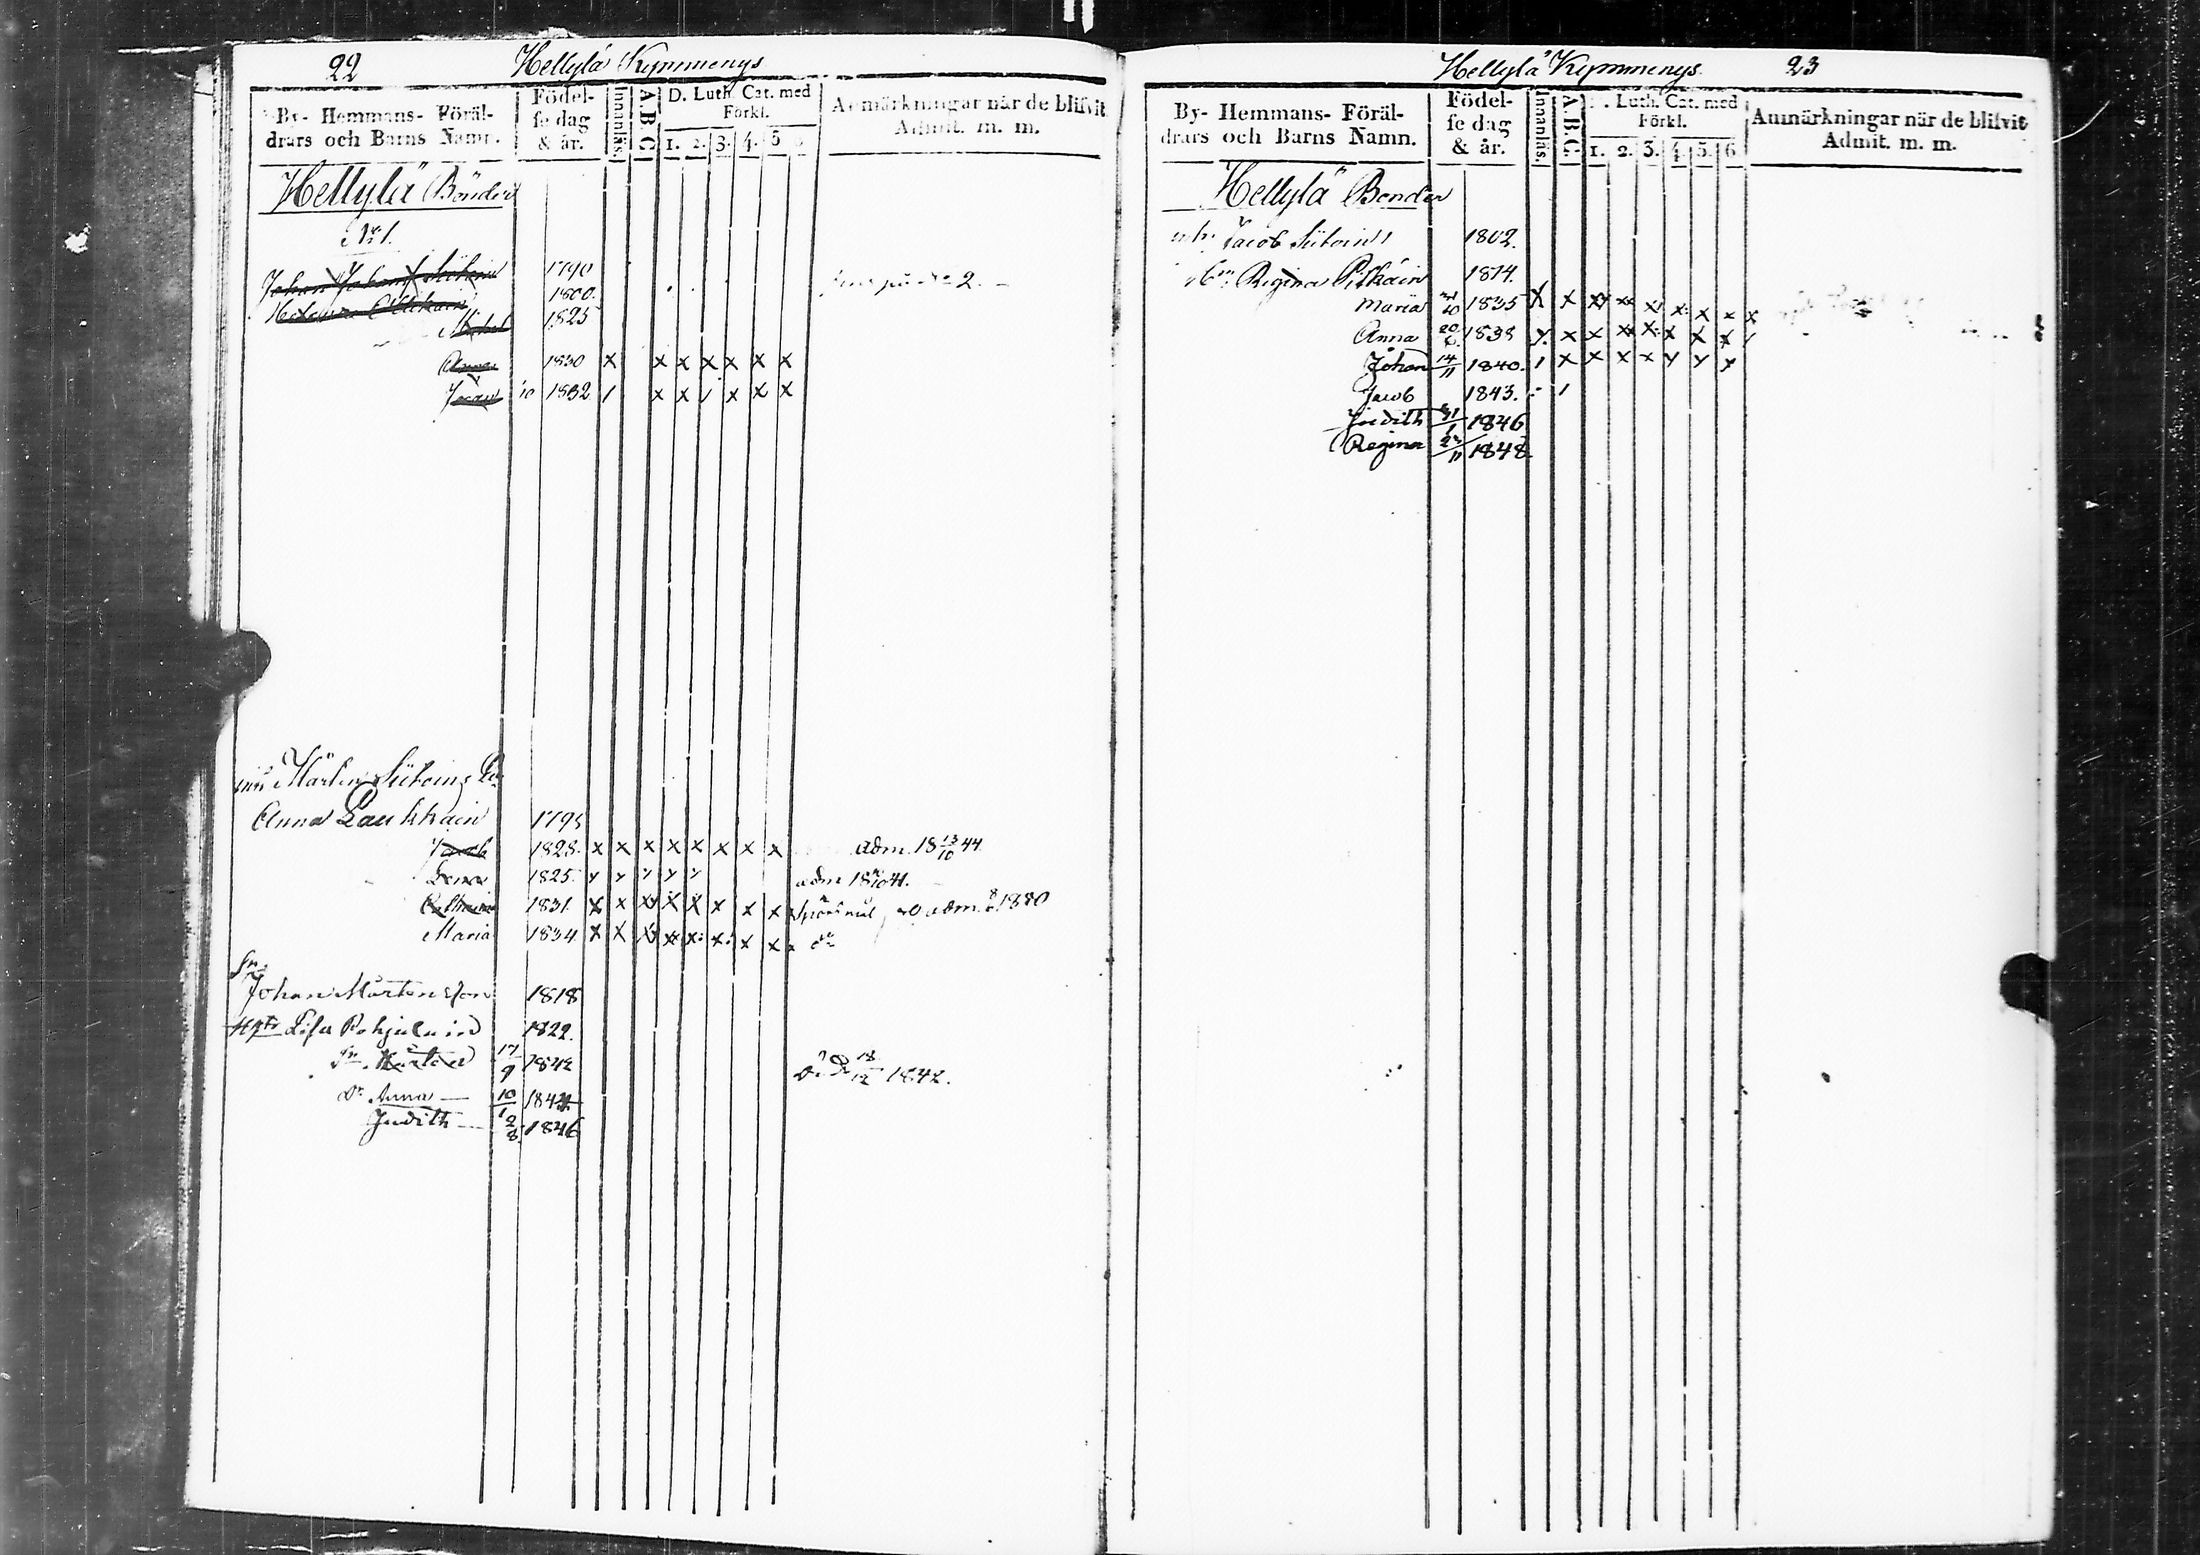 22 Hellylä Kymmenys
By- Hemmans- Föräl-
drars och Barns Namn.
Födel-
se dag
& år.
Innanläs.
A.B.C
D. Luth. Cat. med
Förkl.
1. 2. 3. 4. 5
Anmärkningar når de blifvit
Admit. m. m.
Hellylä Bönder
No 1.
Johan Johans Siitoin 1790
2.
1800.
Michel 1825
Anna 1830 x x x x x x x
Johan 1832 / x x / x x x
Mårten Siitoin
Anna Laukkain 1795
Jacob 1828 x x x x x x x x adm. 18 13/10 44
Lena 1825 adm 18 10 41.
Catharina 1831 x x x x x x x x adm. 1850
Maria 1834 x x x x x x x x do
Sn
Johan Mårtensson 1818
Hust Lisa Pohjalain 1822.
Sn Mårten 17/9 1842 Död 18/12 1842.
Dr Anna — 10/1 1844
Judith — 2/8 1846
Hellylä Kymmenys. 23
By- Hemmans- Föräl-
drars och Barns Namn.
Födel-
se dag
& år.
Innanläs.
A.B.C.
D. Luth. Cat. med
Förkl.
1. 2. 3. 4. 5. 6.
Anmärkningar når de blifvit
Admit. m. m.
Hellylä Bönder
Jacob Siitoin 1802.
Regina Pitkäin 1814.
Maria 1835 x x x x x x x x x
Anna 20 1838 x x x x x x x x
Johan 14/11 1840. / x x x x y y y
Jacob 1843. /
Judith 31/1 1846
Regina 23/11 1848.